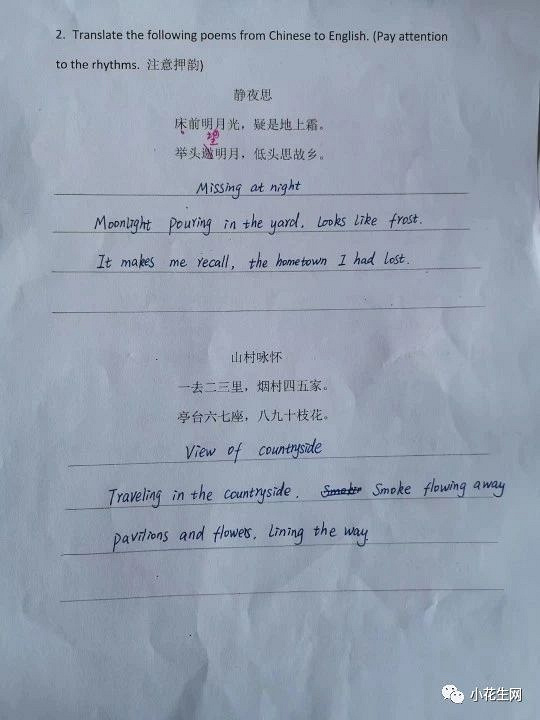 2. Translate the following poems from Chinese to English. (Pay attention
to the rhythms. 注意押韵)
静夜思
床前明月光，疑是地上霜。
望
举头遨明月，低头思故乡。
Missing at night
Moonlight pouring in the yard, looks like frost.
It makes me recall, the hometown I had lost.
山村咏怀
一去二三里，烟村四五家。
亭台六七座，八九十枝花。
View of countryside
Traveling in the countryside, Smoke Smoke flowing away
pavilions and flowers, lining the way
小花生网